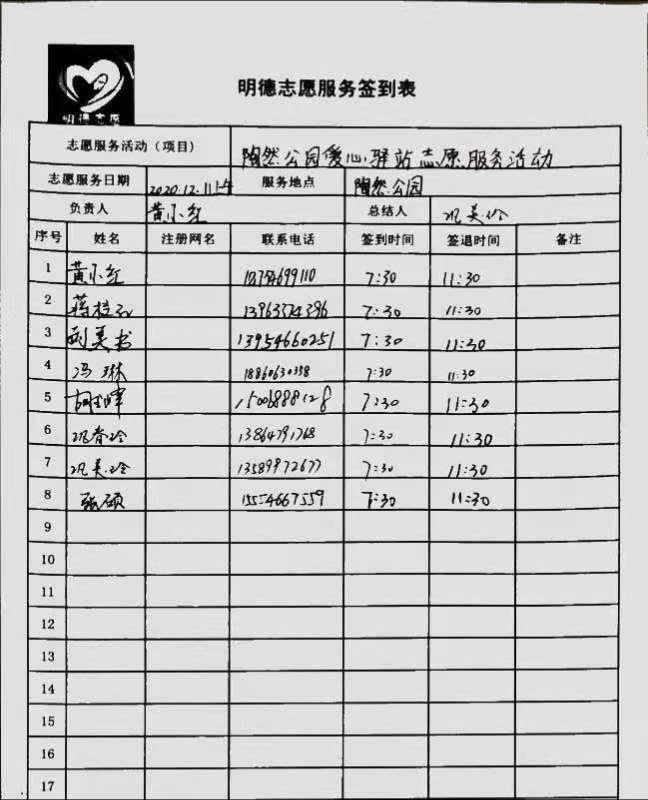 明德志愿
明德志愿服务签到表
志愿服务活动（项目） 陶然公园爱心驿站志愿服务活动
志愿服务日期 2020.12.11上午 服务地点 陶然公园
负责人 黄小红 总结人 巩美玲
序号 姓名 注册网名 联系电话 签到时间 签退时间 备注
1 黄小红 7:30 11:30
2 蒋桂 13963574396 7:30 11:30
3 刘美书 13954660251 7:30 11:30
4 冯琳 18860630338 7:30 11:30
5 7:30 11:30
6 巩春玲 13864791768 7:30 11:30
7 巩美玲 13589972677 7:30 11:30
8 张硕 15554667559 7:30 11:30
9
10
11
12
13
14
15
16
17